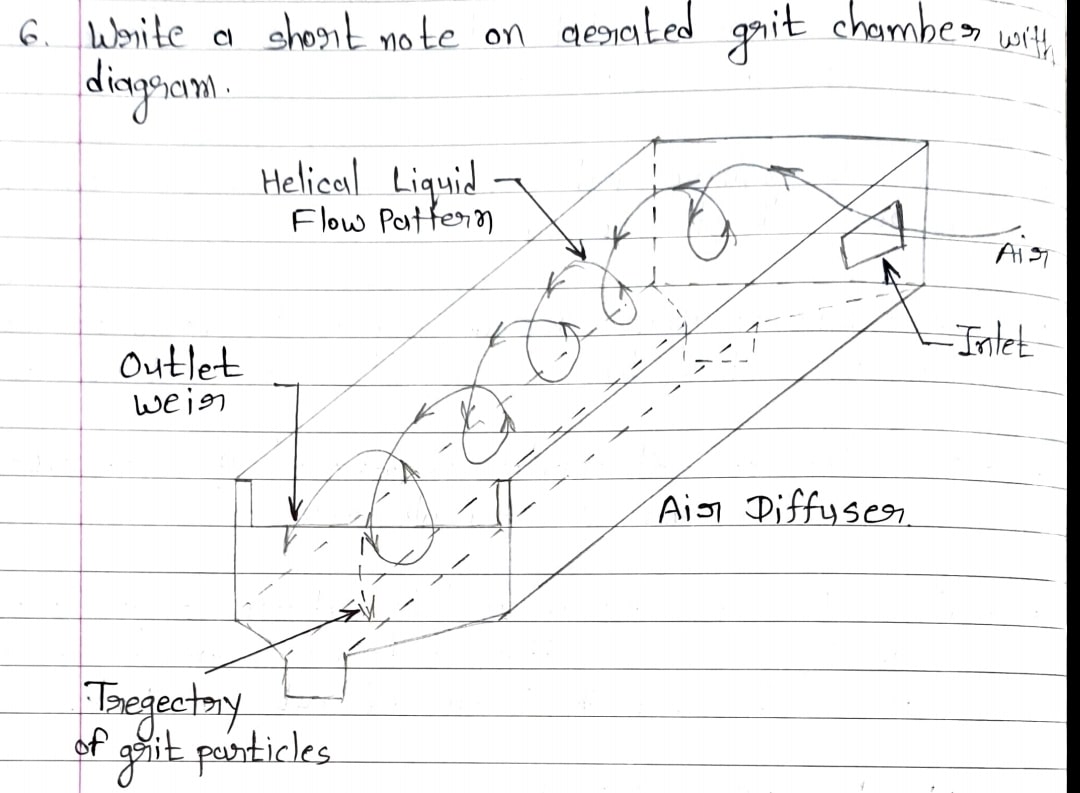 6. Write a short note on aerated grit chamber with
diagram.
Helical Liquid
Flow Pattern
Air
Inlet
Outlet
weir
Air Diffyser.
Tregectry
of grit particles